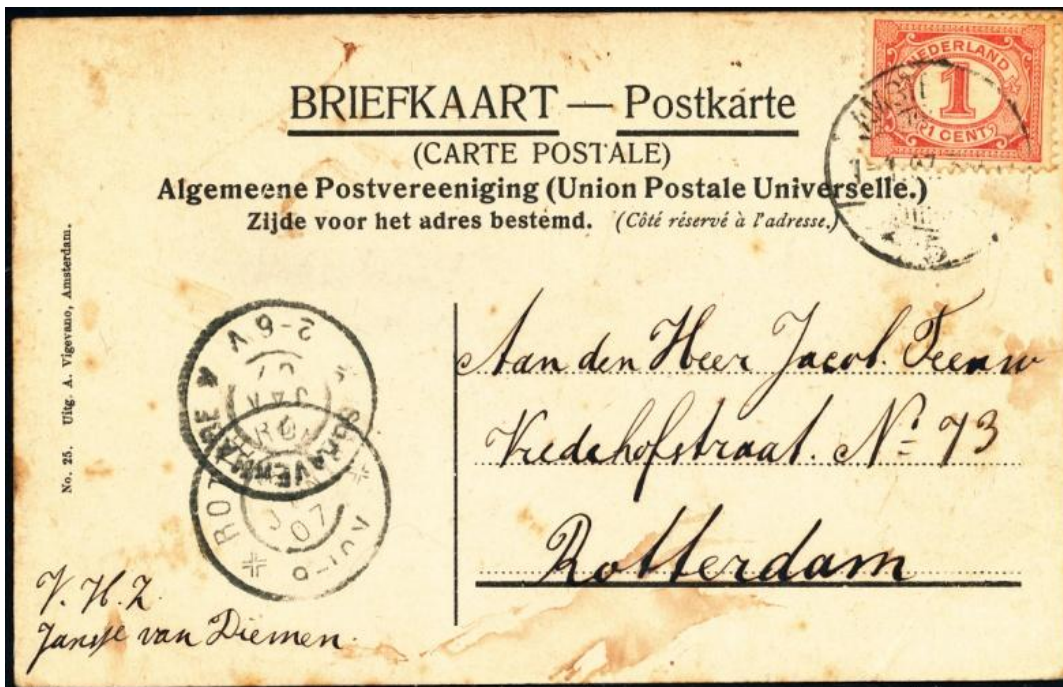 BRIEFKAART — Postkarte
(CARTE POSTALE)
Algemeene Postvereeniging (Union Postale Universelle.)
Zijde voor het adres bestemd. (Côté réservé à l'adresse.)
NEDERLAND
1
1 CENT
No. 25. Uitg. A. Vigevano, Amsterdam.
2-6 V
JAN
07
Aan den Heer Jacob Teeuw
Vredehofstraat. No 73
Rotterdam
V. H. Z.
Jansje van Diemen.